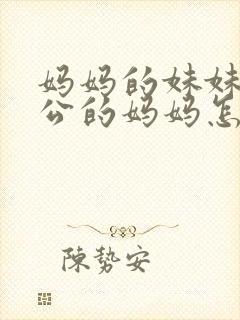 妈妈的妹妹
公的妈妈怎
陳勢安